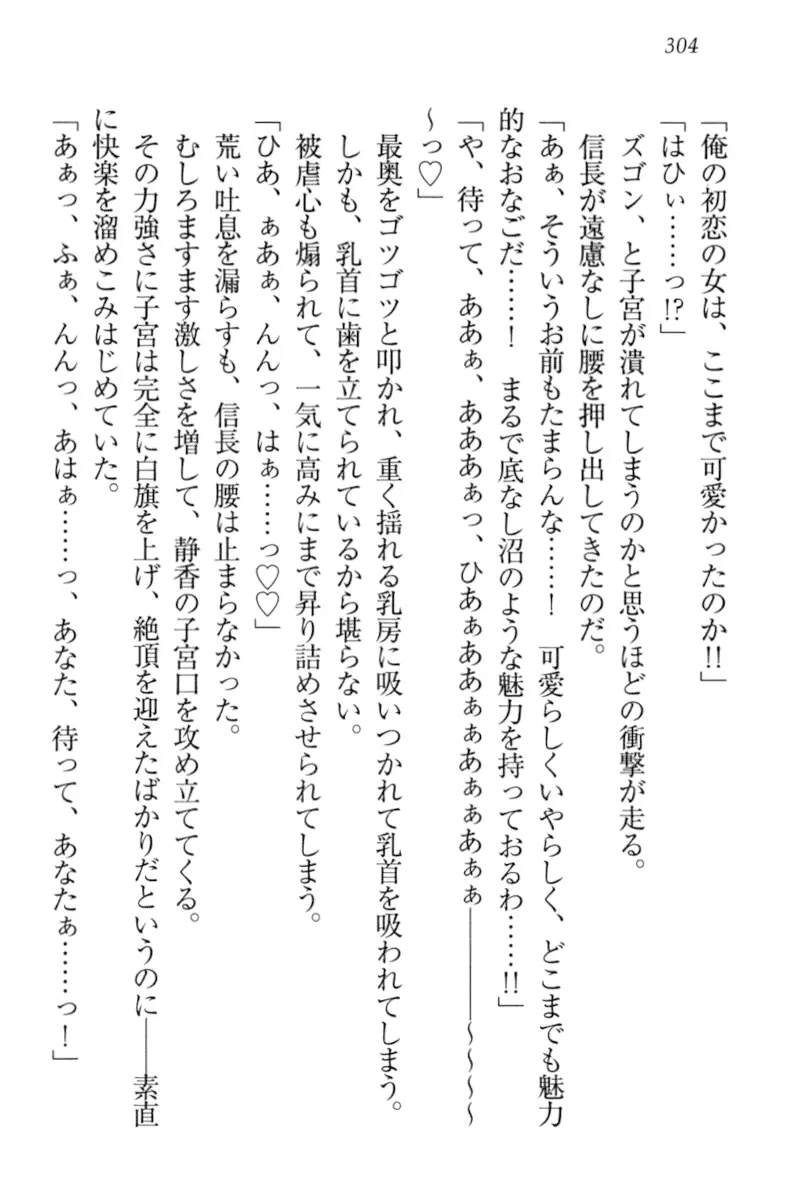 304
「俺の初恋の女は、ここまで可愛かったのか!!」
「はひぃ……っ!?」
ズゴン、と子宮が潰れてしまうのかと思うほどの衝撃が走る。
信長が遠慮なしに腰を押し出してきたのだ。
「あぁ、そういうお前もたまらんな……!　可愛らしくいやらしく、どこまでも魅力
的なおなごだ……!　まるで底なし沼のような魅力を持っておるわ……!!」
「や、待って、ああぁ、あああぁっ、ひあぁああぁぁあぁぁあぁぁ――――～～～～
～っ♡」
最奥をゴツゴツと叩かれ、重く揺れる乳房に吸いつかれて乳首を吸われてしまう。
しかも、乳首に歯を立てられているから堪らない。
被虐心も煽られて、一気に高みにまで昇り詰めさせられてしまう。
「ひあ、ぁあぁ、んんっ、はぁ……っ♡♡」
荒い吐息を漏らすも、信長の腰は止まらなかった。
むしろますます激しさを増して、静香の子宮口を攻め立ててくる。
その力強さに子宮は完全に白旗を上げ、絶頂を迎えたばかりだというのに――素直
に快楽を溜めこみはじめていた。
「あぁっ、ふぁ、んんっ、あはぁ……っ、あなた、待って、あなたぁ……っ!」